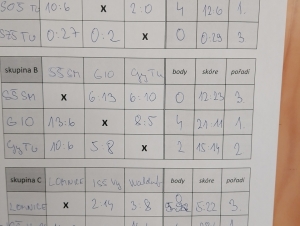 SOŠ Tú 10:6 x 2:0 4 12:6 1.
SŠŠTú 0:27 0:2 x 0 0:29 3
skupina B SŠSM GIO GyTú body skóre pořadí
SŠSM x 6:13 6:10 0 12:23 3.
GIO 13:6 x 8:5 4 21:11 1.
GyTú 10:6 5:8 x 2 15:14 2
skupina C LOMNICE body skóre pořadí
LOMNICE x 2:14 3:8 5:22 3
x